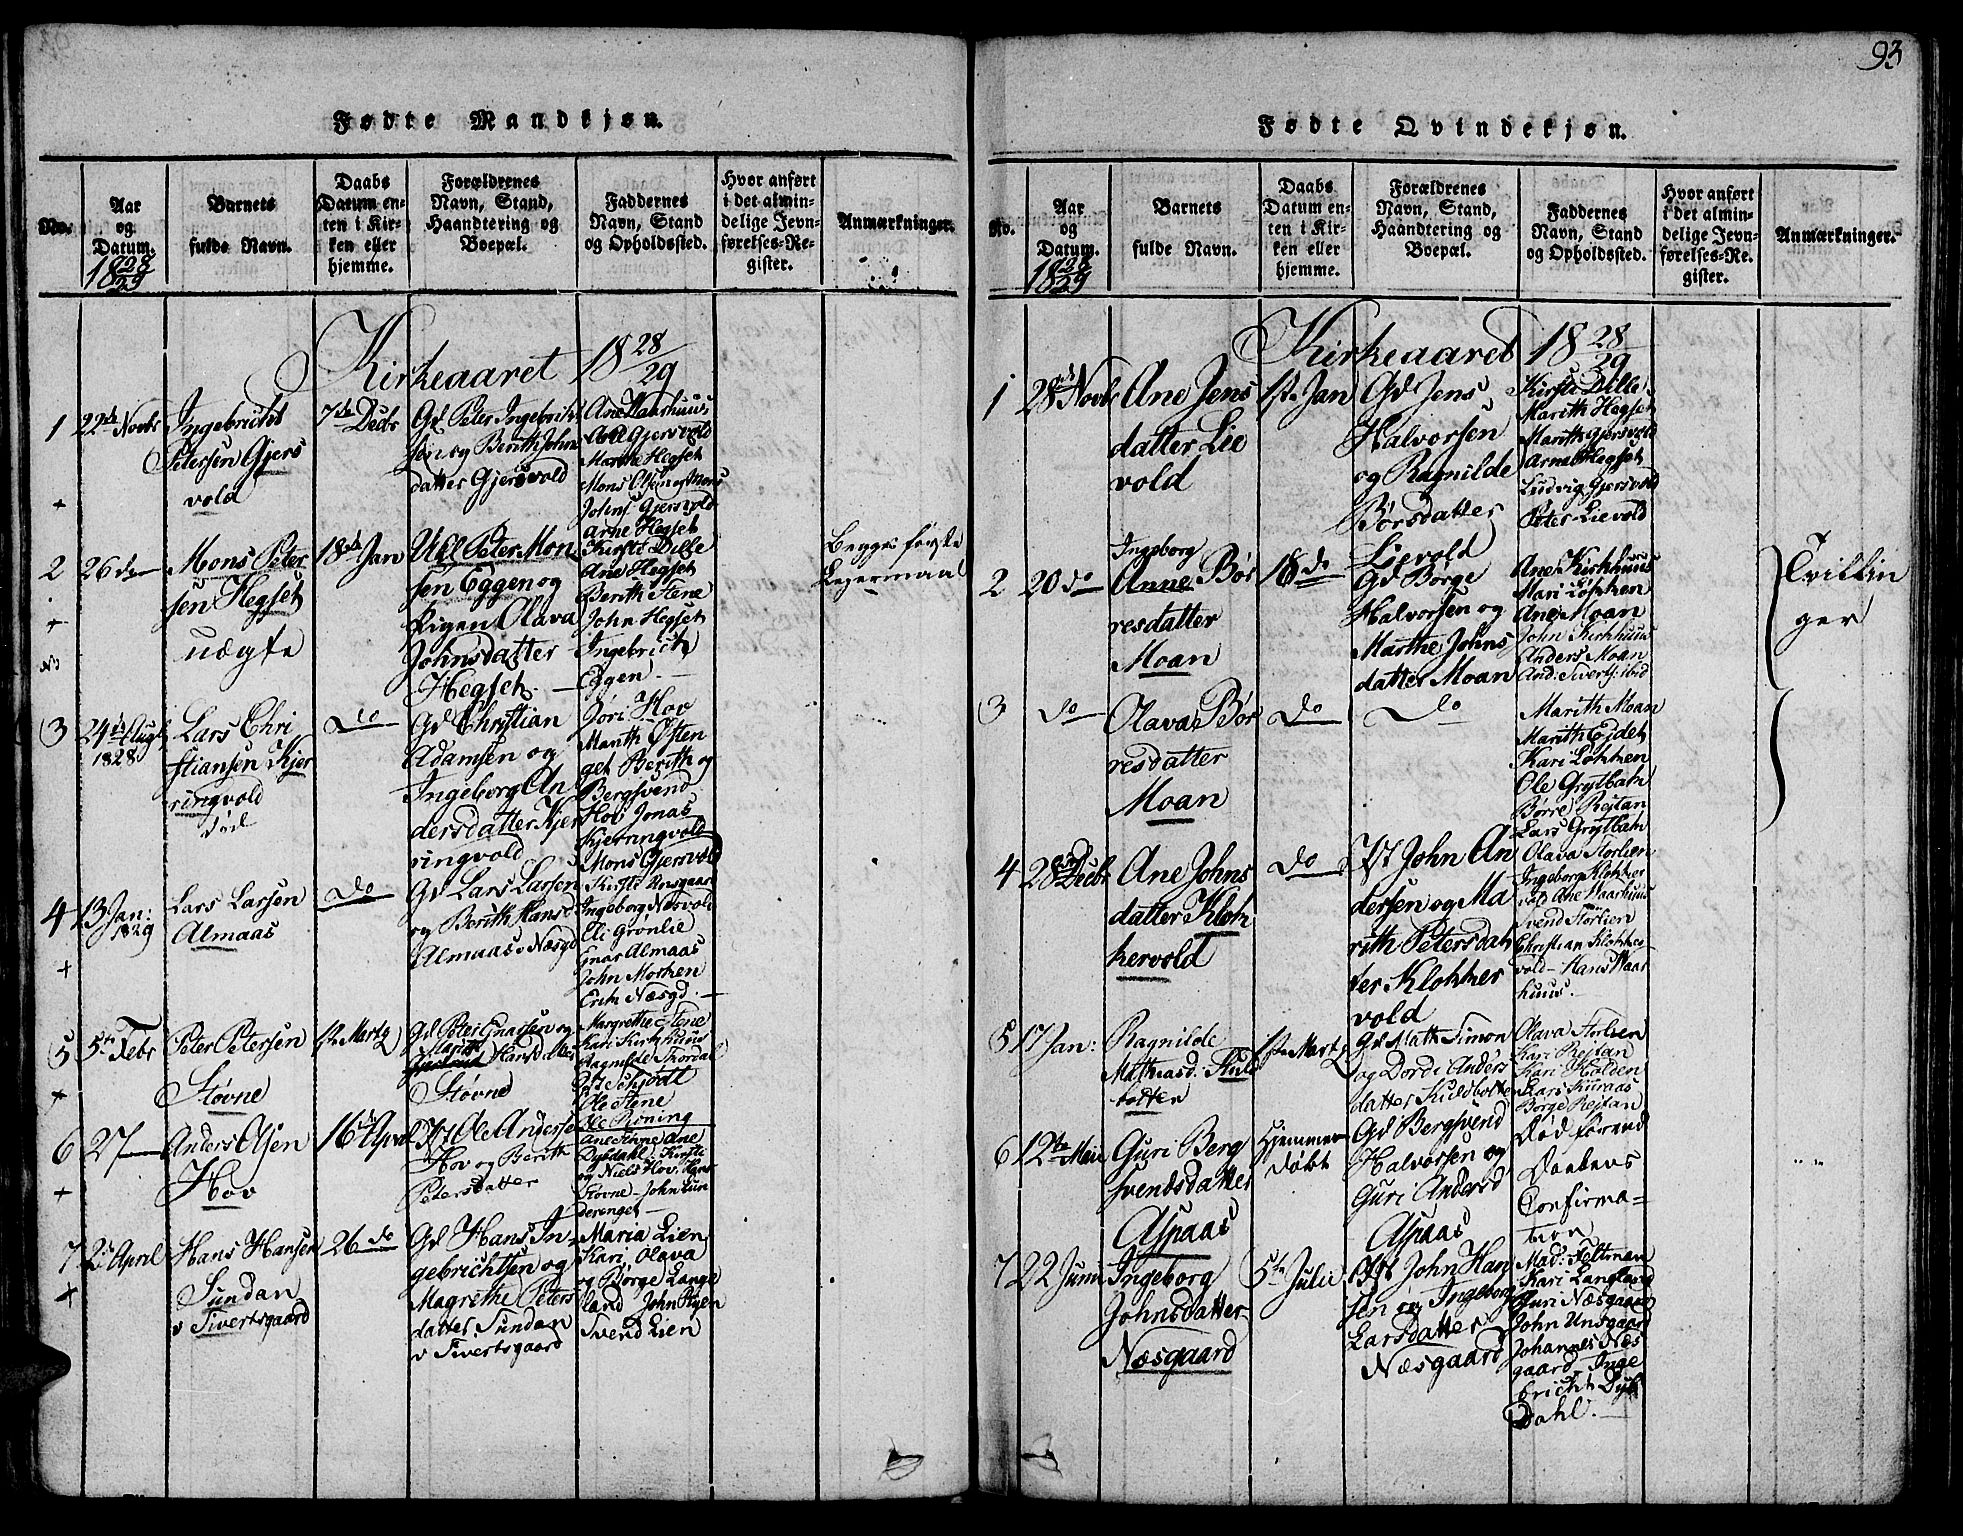 Fødte Mandkjøn.
No.
Aar
og
Datum.
1828/29
Barnets
fulde Navn.
Daabs
Datum en-
ten i Kir-
ken eller
hjemme.
Forældrenes
Navn, Stand,
Haandtering og
Boepæl.
Faddernes
Navn, Stand
og Opholdssted.
Hvor anført
i det almin-
delige Jevn-
førelses-Re-
gister.
Anmærkninger.
Kirkeaaret 18 28/29
1
+
22de Novbr
Ingebricht
Petersen Gjers
vold
7de Decbr
Gd Peter Ingebrichts
søn og Berith Johns
datter Gjersvold
Ane Aarhuus
Gjersvold
Marthe Hegset
Mons Olsen og Mons
Johns. Gjersvold
Arne Hegset
2
+
26 do
Mons Peter
sen Hegset
uægte
18de Jan
Ukl Peter Mon
sen Eggen og
Pigen Olava
Johnsdatter
Hegset.
Kirsti Dille
Ane Hegset
Berith Stene
John Hegset
Ingebricht
Eggen.
Begges første
Lejermaal
3
24de Augt
1828
Lars Chri
stiansen Kjer
ringvold
død
Do
Gd Christian
Adamsen og
Ingeborg An
dersdatter Kjer
ringvold
Jøri Hov
Marith Østen
get Berith og
Bergsvend
Hov Jonas
Kjerringvold
Mons Gjersvold
4
+
13 Jan:
1829
Lars Larsen
Almaas
Do
Gd Lars Larsen
og Berith Hansd
Almaas v Næsgd
Kirsti Unsgaard
Ingeborg Næsvold
Eli Grønlie
Enar Almaas
John Morken
Erik Næsgd.
5
+
5te Febr
Peter Petersen
Støvne
1ste Martz
Gd Peter Enarsen og
Marith
Hansdatter
Støvne
Margrethe Stene
Kari Kirkhuus
Ragnilde Skordal
Schjødt
Ole Stene
Ole Røning
6
+
27
Anders Olsen
Hov
16de April
Ole Anderse
Hov og Berith
Petersdatter
Ane Ane
Dysdahl, Kirsti
og Niels Hov, Hans
Støvne - John Lun
derenget
7
+
2de April
Hans Hansen
Sundan
v Sivertsgaard
26 do
Gd Hans In
gebrichtsen og
Magrethe Peters
datter Sundan
v Sivertsgaard
Maria Lien
Kari, Olava
og Børge Lange
land John Ryen
Svend Lien
93
Fødte Qvindekjøn.
No.
Aar
og
Datum.
1828/29
Barnets
fulde Navn.
Daabs
Datum en-
ten i Kir-
ken eller
hjemme.
Forældrenes
Navn, Stand,
Haandtering og
Boepæl.
Faddernes
Navn, Stand
og Opholdssted.
Hvor anført
i det almin-
delige Jevn-
førelses-Re-
gister.
Anmærkninger.
Kirkeaaret 18 28/29
1
28de Novbr
Ane Jens
datter Lie
vold
1ste Jan
Gd Jens
Halvorsen
og Ragnilde
Børsdatter
Lievold
Kirsti Dille
Marith Hegset
Marith Gjersvold
Arne Hegset
Ludvig Gjersvold
Peter Lievold
2
20 do
Ingeborg
Anne Bør
resdatter
Moan
18 do
Gd Børge
Halvorsen og
Marthe Johns
datter Moan
Ane Kirkhuus
Mari Løkken
Ane Moan
John Kirkhuus
Anders Moan
And: Sivertz: ibid
Tvillin
ger
3
do
Olava Bør
resdatter
Moan
Do
Do
Marith Moan
Marith Eidet
Kari Løkken
Ole Grytbak
Børre Rejtan
Lars Grytbak
4
28 Decbr
Ane Johns
datter Klok
kervold
Do
John An
dersen og Ma
rith Petersdat
ter Klokker
vold
Olava Storlien
Ingeborg Klokker
vold Ane Aarhuus
Svend Storlien
Christian Klokker
vold - Hans Aar
huus.
5
17 Jan:
Ragnilde
Mathiasd: Kuls
botten
1ste Martz
Gd Math Simon
og Dordi Anders
datter Kuldbotten
Olava Storlien
Kari Rejtan
Kari Holden
Lars Kuraas
Børge Rejtan
6
12te Mai
Guri Berg
svendsdatter
Aspaas
Hjemme
døbt
Gd Bergsvend
Halvorsen og
Guri Andersd
Aspaas
Død forend
Daabens
Confirma-
tion
7
22 Juni
Ingeborg
Johnsdatter
Næsgaard
5te Julii
John Han
sen og Ingeborg
Larsdatter
Næsgaard
Mad: Feltman
Kari Langland
Guri Næsgaard
John Unsgaard
Johannes Næs
gaard, Inge
bricht Dys
Dahl.